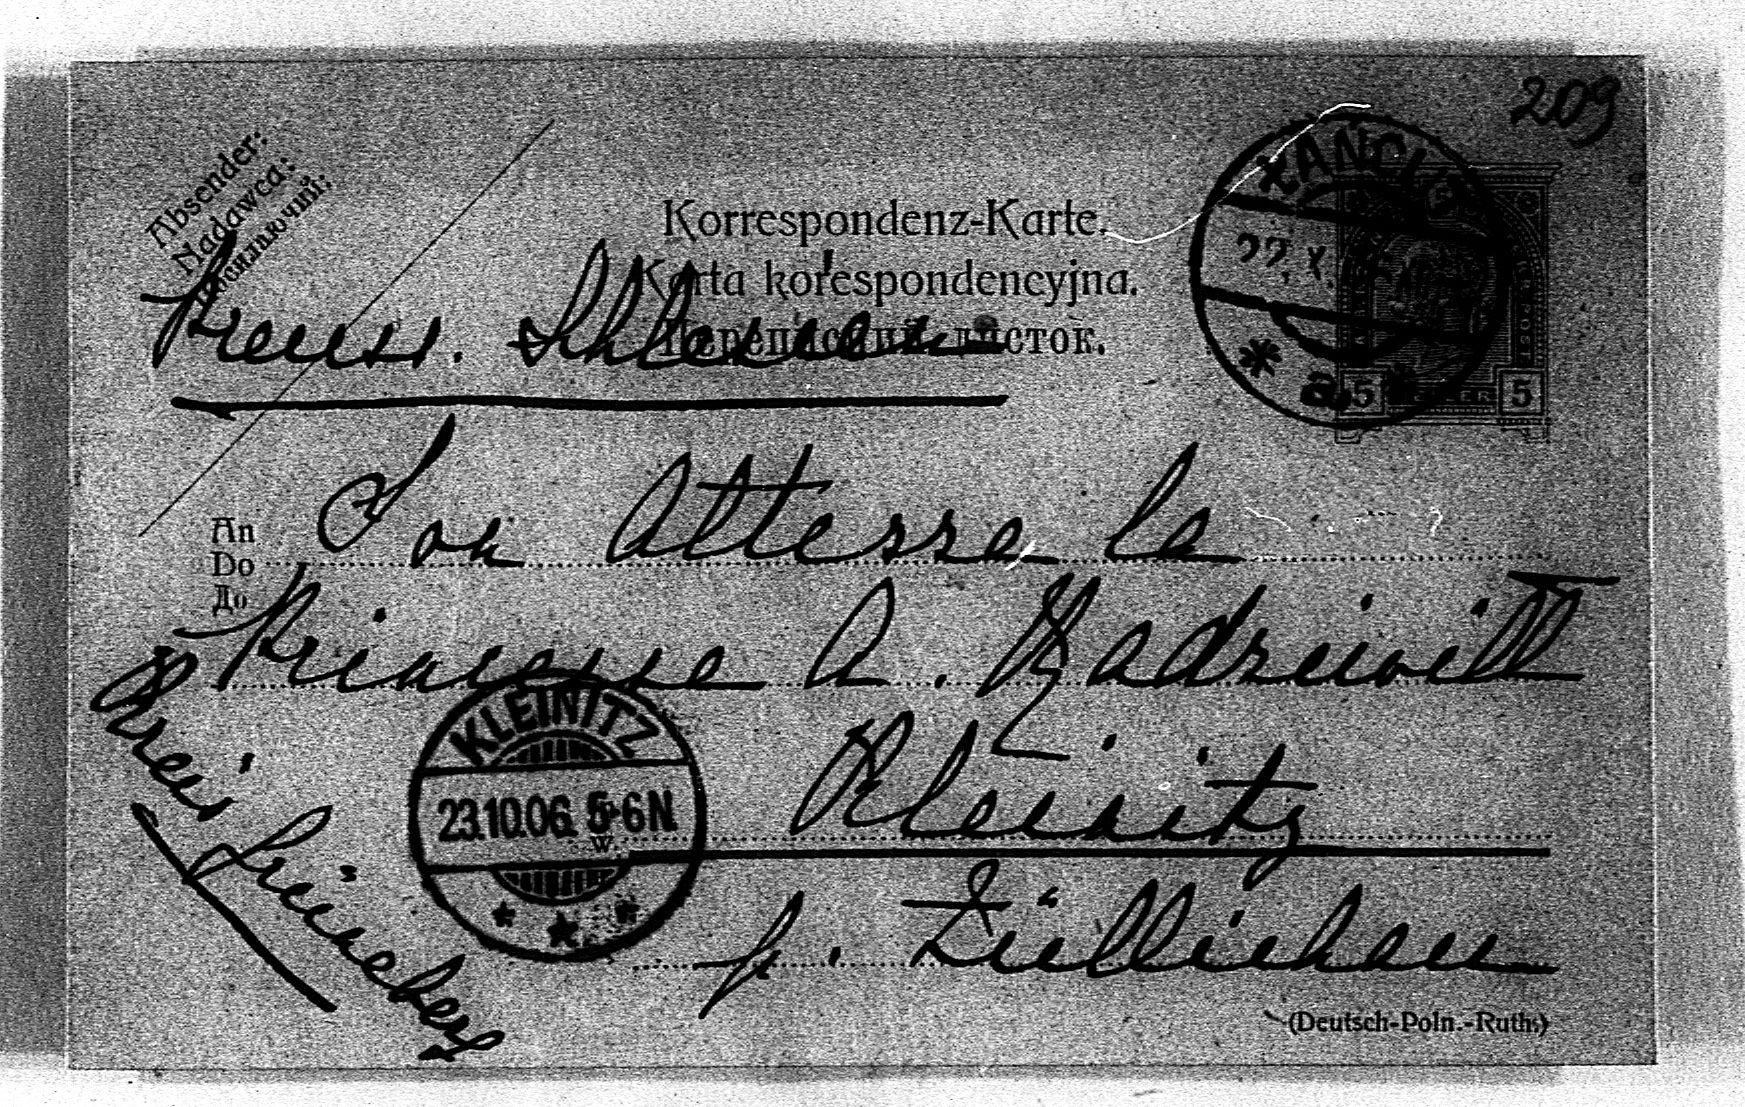 209
Absender:
Nadawca:
Посилаючий:
Korrespondenz-Karte.
Karta korespondencyjna.
Переписний листок.
ŁAŃCUT
22. X.
* a *
5 HELLER 5
Preuss. Schlesien
An
Do
До
Son Altesse la
Princesse A. Radziwill
Kleinitz
p. Züllichau
Kreis Grüneberg
KLEINITZ
23.10.06. 5-6N
W.
(Deutsch-Poln.-Ruth.)